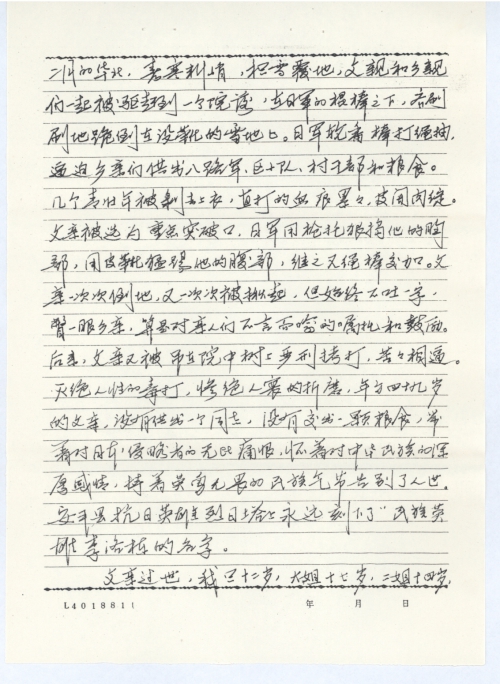 二月的华北，春寒料峭，积雪覆地，父亲和乡亲
们一起被驱赶到一个院落，在日军的棍棒之下，齐刷
刷地跪倒在没靴的雪地上。日军挽着棒打绳抽，
逼迫乡亲们供出八路军、区小队、村干部和粮食。
几个青壮年被剥去上衣，直打的血痕累々，皮开肉绽。
父亲被选为重点突破口，日军用枪托狠捣他的胸
部，用皮靴猛踢他的腹部，继之又绳棒交加。父
亲一次次倒地，又一次次被揪起，但始终不吐一字，
瞥一眼乡亲，算是对亲人们不言而喻的嘱托和鼓励。
后来，父亲又被吊在院中树上严刑拷打，苦々相逼。
灭绝人性的毒打，惨绝人寰的折磨，年方四十九岁
的父亲，没有供出一个同志，没有交出一颗粮食，带
着对日本侵略者的无比痛恨，怀着对中华民族的深
厚感情，持着英勇无畏的民族气节告别了人世。
安平县抗日英雄烈士塔上永远刻下了“民族英
雄李洛栋的名字。
父亲过世，我已十二岁，大姐十七岁，二姐十四岁，
L4018811 年 月 日